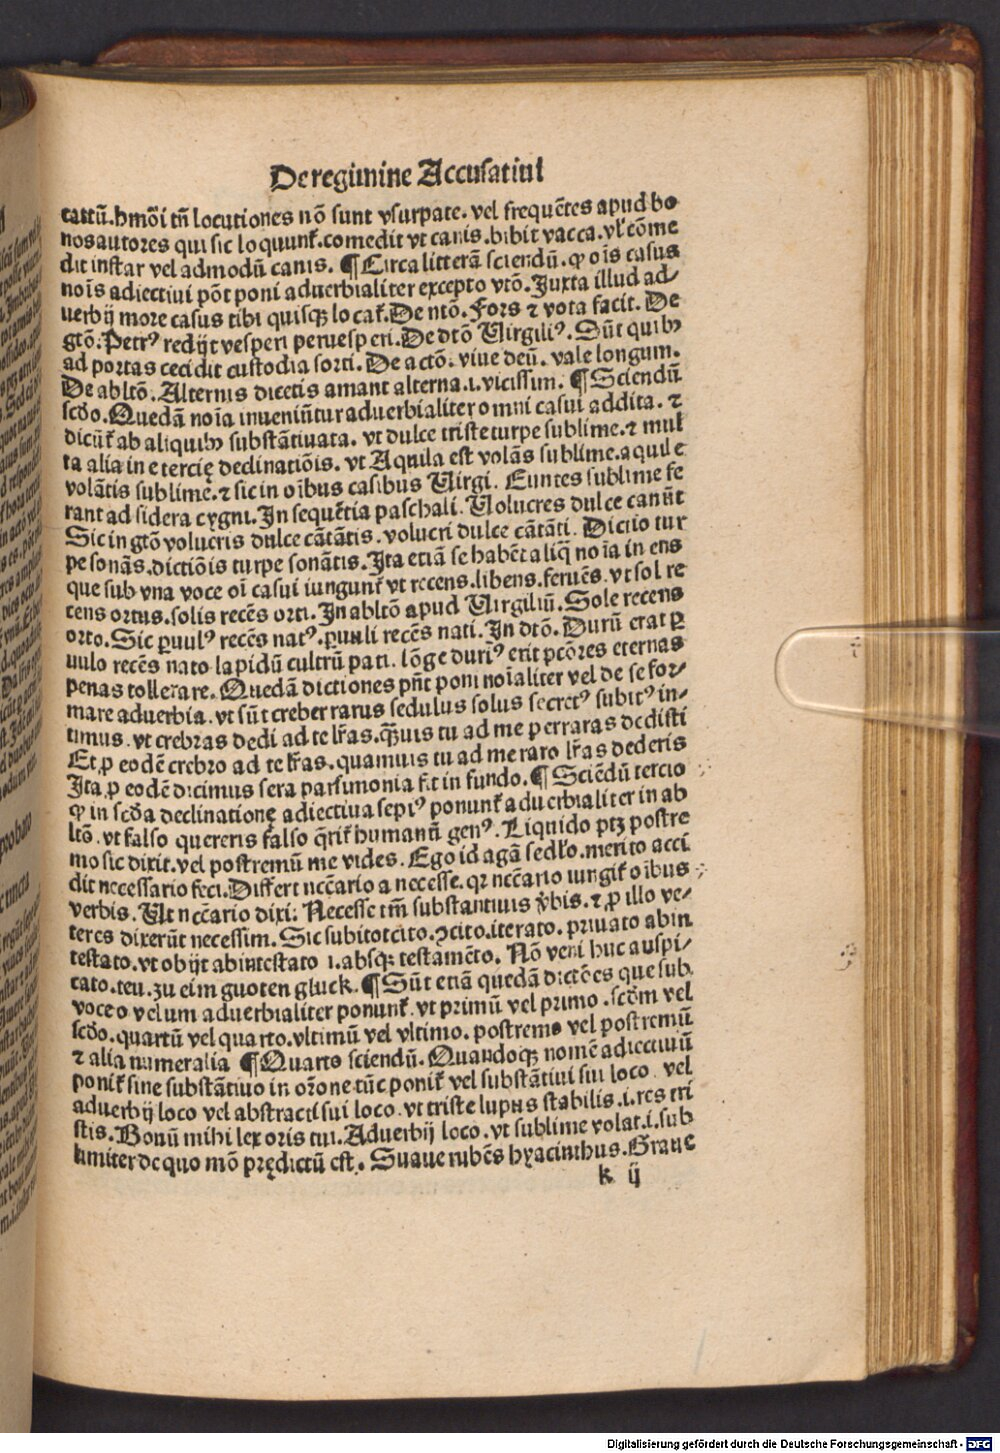 De regimine Accusatiui
tatiū. hmōi tñ locutiones nō sunt vsurpate. vel frequētes apud bo
nos autores qui sic loquunt̃. comedit vt canis. bibit vacca. vl̓ cōme
dit instar vel admodū canis. ¶ Circa litterā sciendū. ꝙ oīs casus
noīs adiectiui pōt poni aduerbialiter excepto vtō. Juxta illud ad⸗
uerbij more casus tibi quisqꝫ locat̃. De ntō. Fors ⁊ vota facit. De
gtō. Petrꝰ redijt vesperi peruesperi. De dtō Virgiliꝰ. Sūt quibꝫ
ad portas cecidit custodia sorti. De actō. viue deū. vale longum.
De abltō. Alternis dicetis amant alterna .i. vicissim. ¶ Sciendū
scđo. Quedā noīa inueniūtur aduerbialiter omni casui addita. ⁊
dicūt̃ ab aliquibꝫ substātiuata. vt dulce triste turpe sublime. ⁊ mul
ta alia in e tercię declinatiōis. vt Aquila est volās sublime. aquile
volātis sublime. ⁊ sic in oībus casibus Virgi. Euntes sublime fe
rant ad sidera cygni. In sequētia paschali. Volucres dulce canūt
Sic in gtō volucris dulce cātātis. volucri dulce cātāti. Dictio tur
pe sonās. dictiōis turpe sonātis. Ita etiā se habēt aliq̄ noīa in ens
que sub vna voce oī casui iungunt̃ vt recens. libens. feruēs. vt sol re
cens ortus. solis recēs orti. In abltō apud Virgiliū. Sole recens
orto. Sic ꝑuulꝰ recēs natꝰ. ꝑuuli recēs nati. In dtō. Durū erat ꝑ
uulo recēs nato lapidū cultrū pati. lōge duriꝰ erit pctōres eternas
penas tollerare. Quedā dictiones pñt poni noīaliter vel de se for⸗
mare aduerbia. vt sūt creber rarus sedulus solus secretꝰ subitꝰ in⸗
timus. vt crebras dedi ad te lr̄as. q̄uis tu ad me perraras dedisti
Et ꝓ eodē crebro ad te lr̄as. quamuis tu ad me raro lr̄as dederis
Ita ꝓ eodē dicimus sera parsimonia fit in fundo. ¶ Sciēdū tercio
ꝙ in scđa declinatione adiectiua sepiꝰ ponunt̃ aduerbialiter in ab
ltō. vt falso quereris falso q̄rit̃ humanū genꝰ. Liquido ptꝫ postre
mo sic dixit. vel postremū me vides. Ego id agā sedło. merito acci
dit necessario feci. Differt necc̄ario a necesse. qꝛ necc̄ario iungit̃ oībus
verbis. Vt necc̄ario dixi. Necesse tm̄ substantiuis v̄bis. ⁊ ꝓ illo ve⸗
teres dixerūt necessim. Sic subito tcito. ꝯcito. iterato. priuato abin
testato. vt obijt abintestato .i. absqꝫ testamēto. Nō veni huc auspi⸗
cato. teu. zu eim guoten gluck. ¶ Sūt etiā quedā dictōes que sub
voce o vel um aduerbialiter ponunt̃. vt primū vel primo. scđm vel
scđo. quartū vel quarto. vltimū vel vltimo. postremo vel postremū
⁊ alia numeralia ¶ Quarto sciendū. Quandoqꝫ nomē adiectiuū
ponit̃ sine substātiuo in or̄one tūc ponit̃ vel substātiui sui loco. vel
aduerbij loco vel abstracti sui loco. vt triste lupus stabilis .i. res tri
stis. Bonū mihi lex oris tui. Aduerbij loco. vt sublime volat .i. sub
limiter de quo mō prędictū est. Suaue rubēs hyacinthus. Graue
k ij
Digitalisierung gefördert durch die Deutsche Forschungsgemeinschaft - DFG